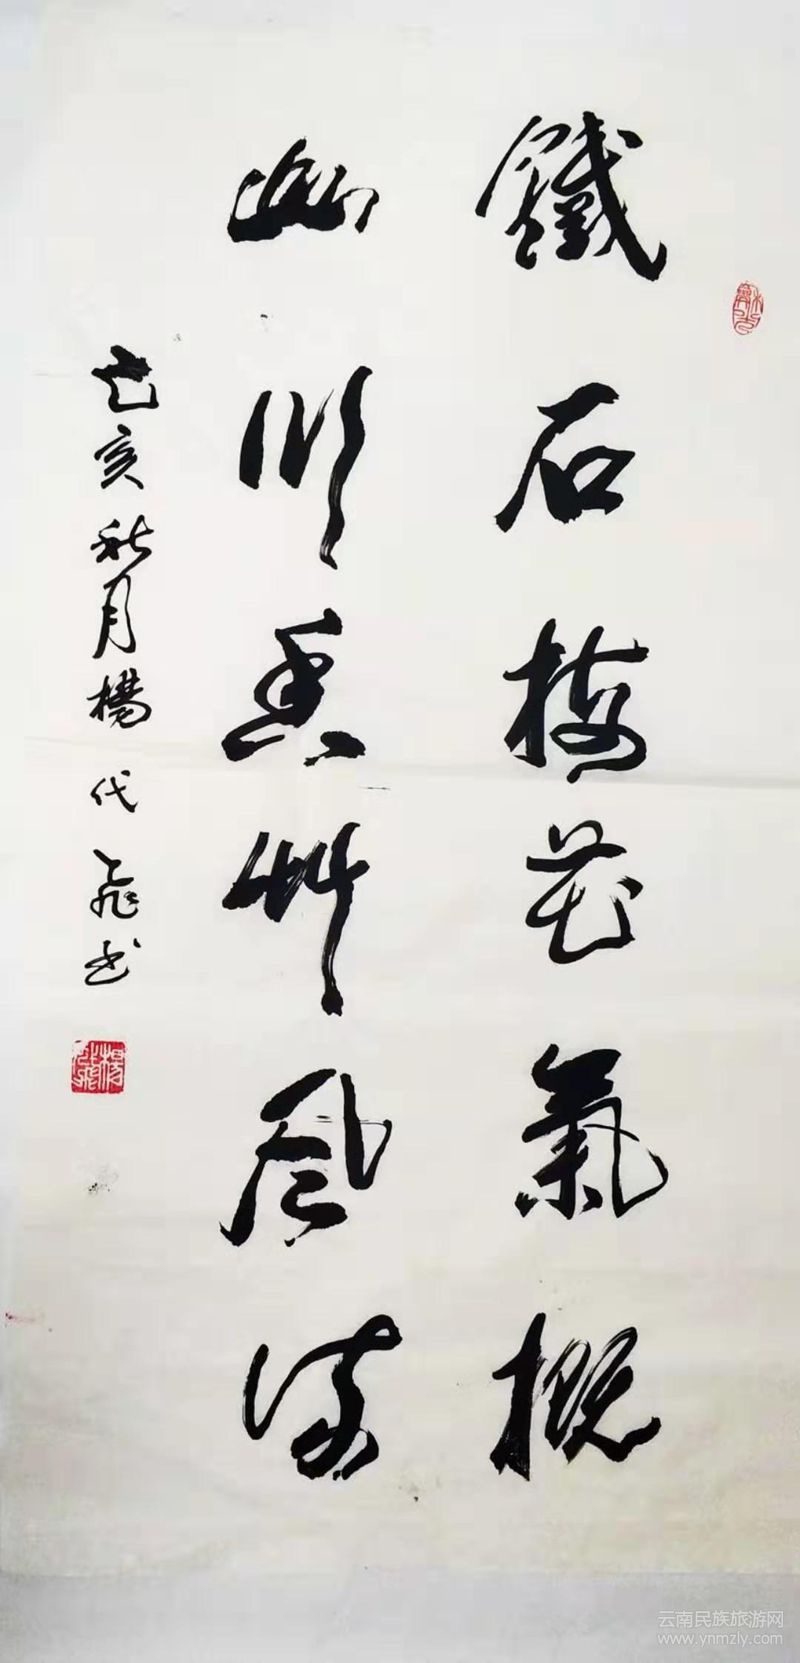 鐵石梅花氣概
山川香草風流
己亥秋月楊代飛书
云南民族旅游网
www.ynmzly.com